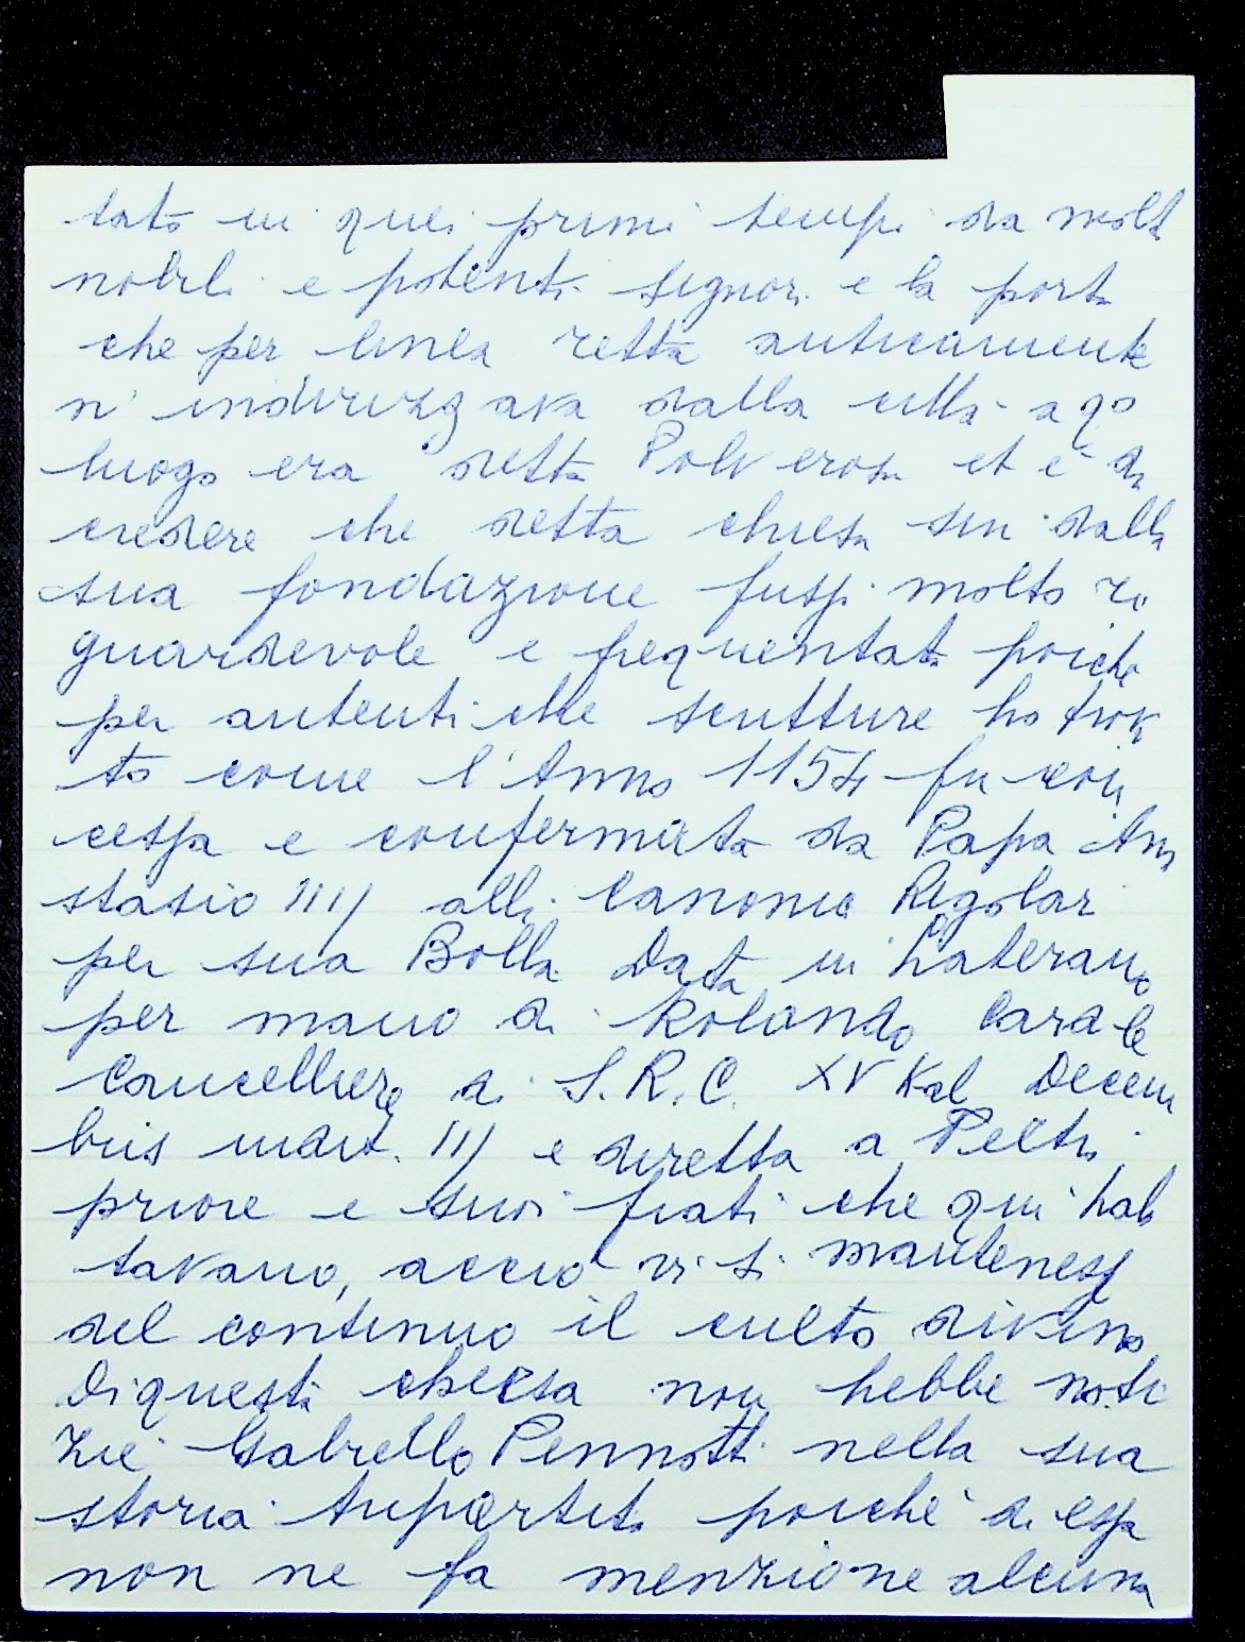 tato in quei primi tempi da molt
nobili e potenti signori e la porta
che per linea retta anticamente
n' indirizzava dalla città a qo
luogo era detta Polverosa et è di
credere che detta chiesa sin dalla
sua fondazione fussi molto ri
guardevole e frequentata poiche
per autentiche scritture ho trova
to come l'Anno 1154 fu con
cessa e confermata da Papa Ana
stasio IIIJ alli Canonici Regolari
per sua Bolla Data in Laterano
per mano di Rolando Cardle
Cancelliere di S.R.C. XV Kal Decem
bris indict. IIJ e diretta a
priore e suoi frati che qui habi
tavano, acciò vi si mantenesse
del continuo il culto divino
Di questa chiesa non hebbe noti
zie Gabrello Pennotti nella sua
storia tripartita poichè di essa
non ne fa menzione alcuna